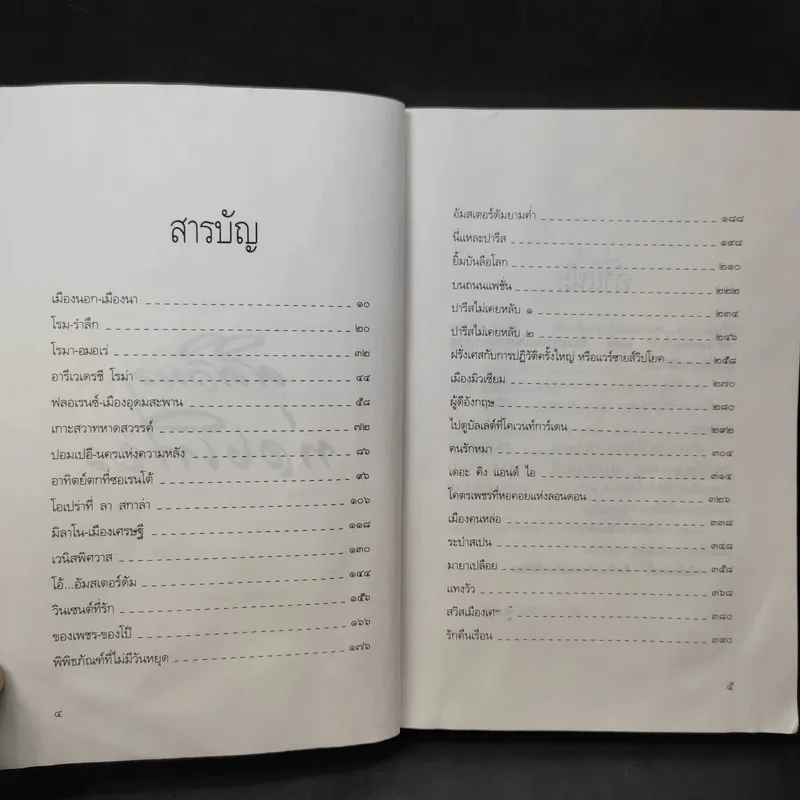 สารบัญ
เมืองนอก-เมืองนา ๑๐
โรม-รำลึก ๒๐
โรมา-อมอเร่ ๓๒
อารีเวเดรซี โรม่า ๔๔
ฟลอเรนซ์-เมืองอุดมสะพาน ๕๘
เกาะสวาทหาดสวรรค์ ๗๒
ปอมเปอี-นครแห่งความหลัง ๘๖
อาทิตย์ตกที่ซอเรนโต้ ๙๖
โอเปร่าที่ ลา สกาล่า ๑๐๖
มิลาโน-เมืองเศรษฐี ๑๑๘
เวนิสพิศวาส ๑๓๐
โอ้...อัมสเตอร์ดัม ๑๔๔
วินเซนต์ที่รัก ๑๕๖
ของเพชร-ของโป๊ ๑๖๖
พิพิธภัณฑ์ที่ไม่มีวันหยุด ๑๗๖
๔
อัมสเตอร์ดัมยามค่ำ ๑๘๘
นี่แหละปารีส ๑๙๘
ยิ้มบันลือโลก ๒๑๐
บนถนนแฟชั่น ๒๒๒
ปารีสไม่เคยหลับ ๑ ๒๓๔
ปารีสไม่เคยหลับ ๒ ๒๔๖
ฝรั่งเศสกับการปฏิวัติครั้งใหญ่ หรือแวร์ซายส์วิปโยค ๒๕๘
เมืองมิวเซียม ๒๗๐
ผู้ดีอังกฤษ ๒๘๐
ไปดูบัลเล่ต์ที่โคเวนท์การ์เดน ๒๙๒
คนรักหมา ๓๐๔
เดอะ คิง แอนด์ ไอ ๓๑๔
โคตรเพชรที่หอคอยแห่งลอนดอน ๓๒๖
เมืองคนหล่อ ๓๓๘
ระบำสเปน ๓๔๘
มายาเปลือย ๓๕๘
แทงวัว ๓๖๘
สวิสเมืองเศรษฐี ๓๘๐
รักคืนเรือน ๓๙๐
๕